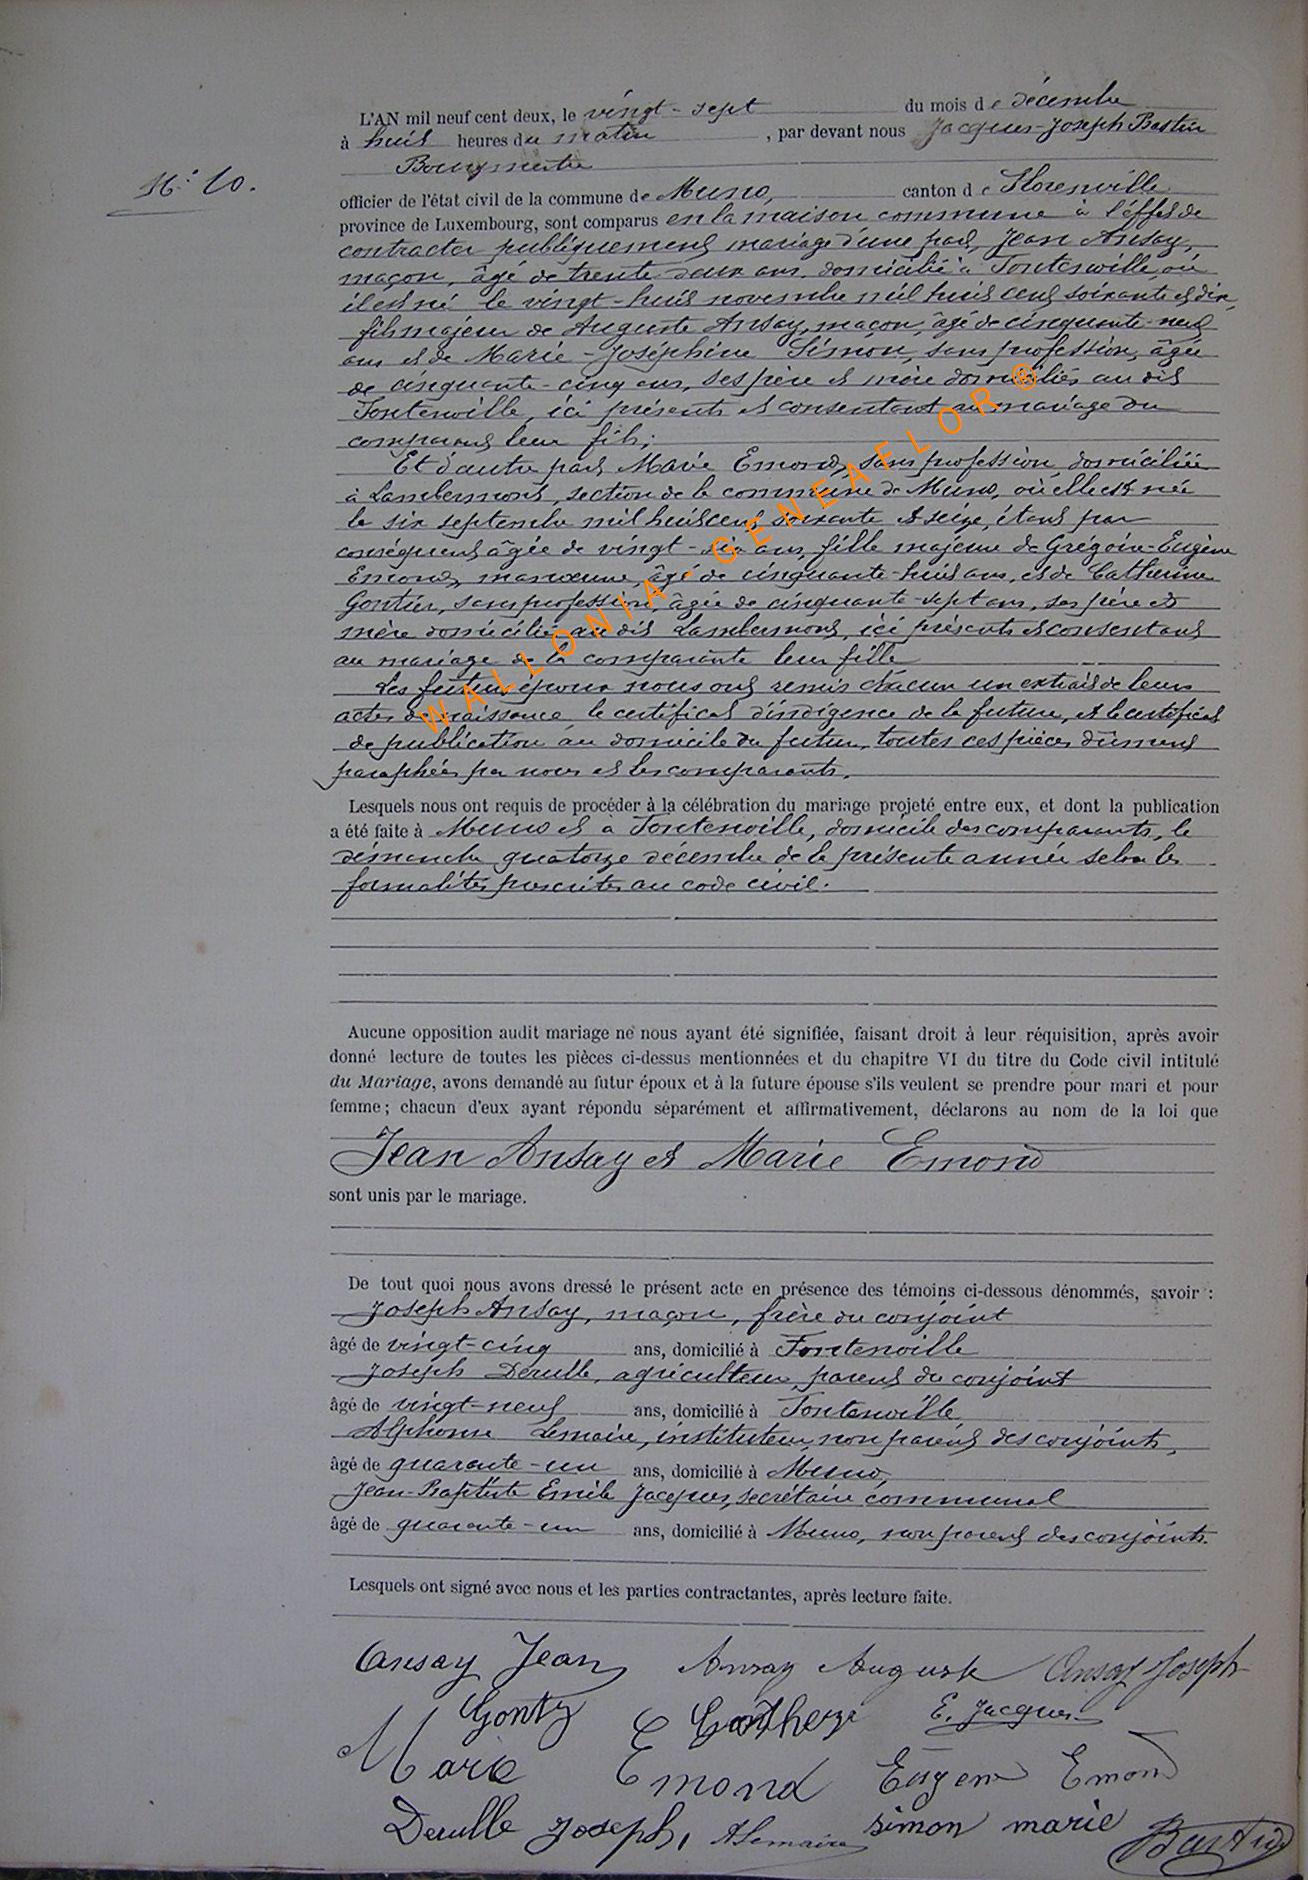 L'AN mil neuf cent deux, le vingt-sept du mois de décembre
à huit heures du matin, par devant nous Jacques-Joseph Bastin
Bourgmestre
N° 10.
officier de l'état civil de la commune de Muno, canton de Florenville
province de Luxembourg, sont comparus en la maison commune à l'effet de
contracter publiquement mariage d'une part, Jean Ansay,
maçon, âgé de trente deux ans, domicilié à Fontenoille, où
il est né le vingt-huit novembre mil huit cent soixante et dix,
fils majeur de Auguste Ansay, maçon, âgé de cinquante-neuf
ans et de Marie-Joséphine Simon, sans profession, âgée
de cinquante-cinq ans, ses père et mère domiciliés au dit
Fontenoille, ici présents et consentant au mariage du
comparant leur fils;
Et d'autre part Marie Emond, sans profession, domiciliée
à Lambermont, section de la commune de Muno, où elle est née
le six septembre mil huit cent soixante et seize, étant par
conséquent âgée de vingt-six ans, fille majeure de Grégoire-Eugène
Emond, manœuvre, âgé de cinquante-huit ans, et de Catherine
Gontier, sans profession, âgée de cinquante-sept ans, ses père et
mère domiciliés au dit Lambermont, ici présents et consentant
au mariage de la comparante leur fille
Les futurs époux nous ont remis chacun un extrait de leurs
actes de naissance, le certificat d'indigence de la future, et le certificat
de publication au domicile du futur, toutes ces pièces dûment
paraphées par nous et les comparants.
Lesquels nous ont requis de procéder à la célébration du mariage projeté entre eux, et dont la publication
a été faite à Muno et à Fontenoille, domicile des comparants, le
dimanche quatorze décembre de la présente année selon les
formalités prescrites au code civil.
Aucune opposition audit mariage ne nous ayant été signifiée, faisant droit à leur réquisition, après avoir
donné lecture de toutes les pièces ci-dessus mentionnées et du chapitre VI du titre du Code civil intitulé
du Mariage, avons demandé au futur époux et à la future épouse s'ils veulent se prendre pour mari et pour
femme; chacun d'eux ayant répondu séparément et affirmativement, déclarons au nom de la loi que
Jean Ansay et Marie Emond
sont unis par le mariage.
De tout quoi nous avons dressé le présent acte en présence des témoins ci-dessous dénommés, savoir :
Joseph Ansay, maçon, frère du conjoint
âgé de vingt-cinq ans, domicilié à Fontenoille
Joseph Derulle, agriculteur, parent du conjoint
âgé de vingt-neuf ans, domicilié à Fontenoille
Alphonse Lemaire, instituteur, non parent des conjoints,
âgé de quarante-un ans, domicilié à Muno,
Jean-Baptiste Emile Jacques, secrétaire communal
âgé de quarante-un ans, domicilié à Muno, non parent des conjoints.
Lesquels ont signé avec nous et les parties contractantes, après lecture faite.
Ansay Jean Ansay Auguste Ansay Joseph
E. Jacques
Marie Emond Eugene Emond
Derulle Joseph, A Lemaire simon marie Bastin
WALLONIA-GENEAFLOR®